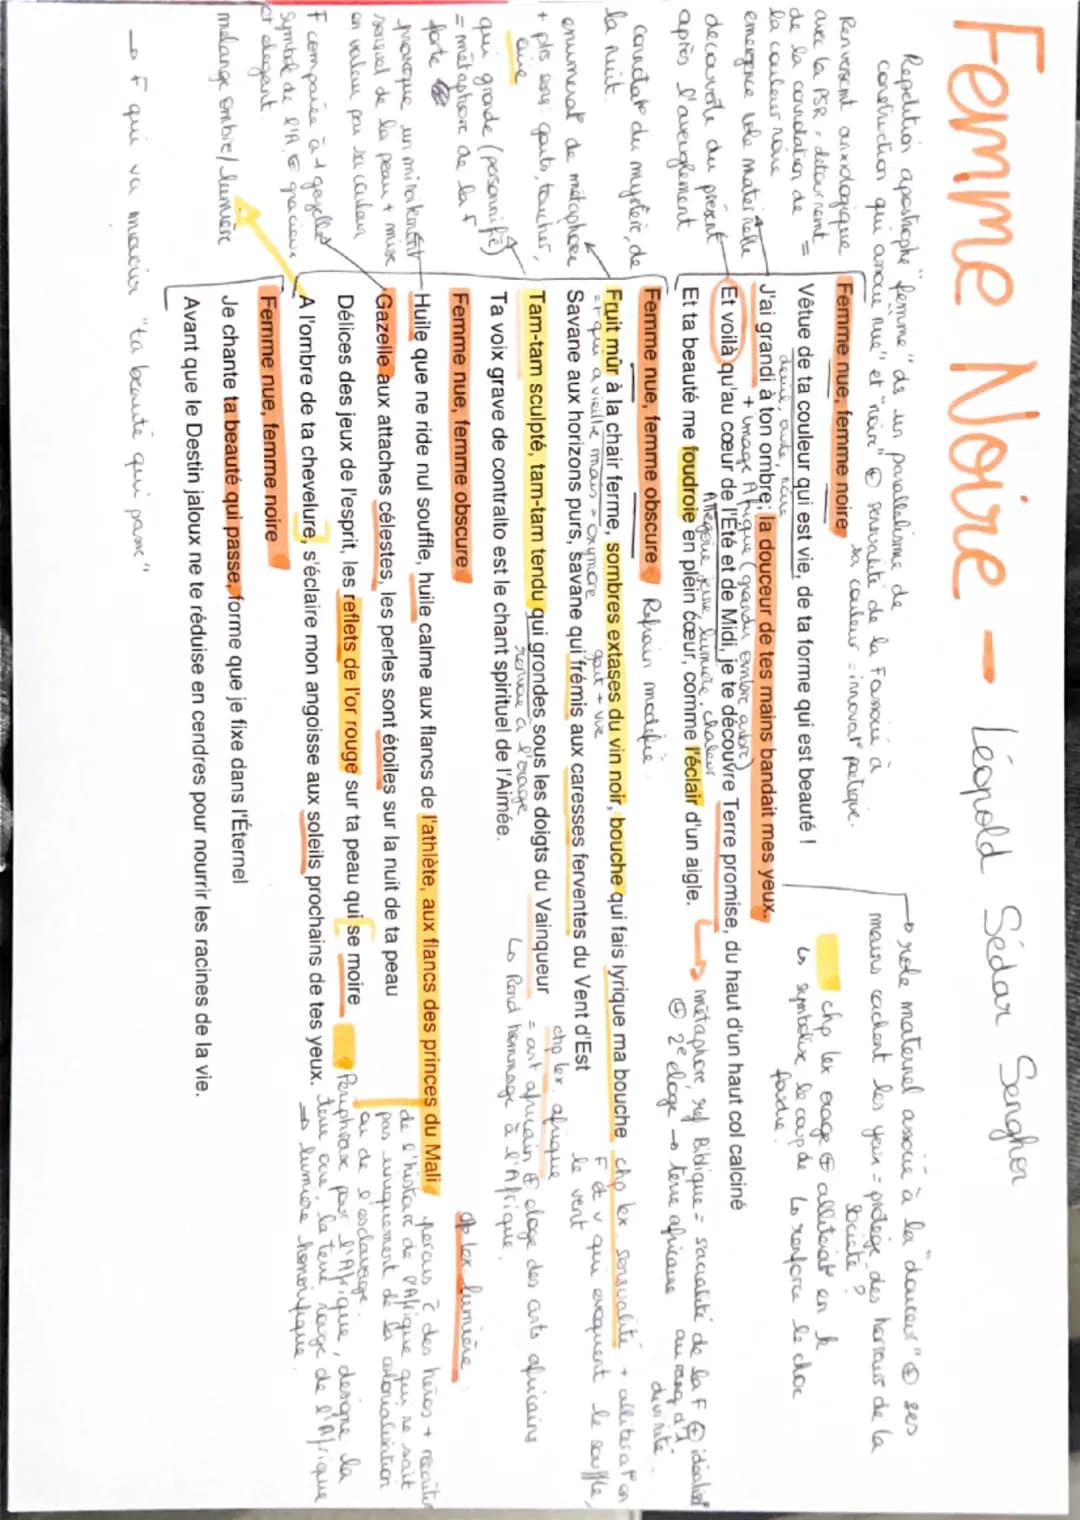 Femme Noire - Léopold Sédar Senghor
Répétition apostrophe "femme" ds un parallélisme de
construction qui associe nue" et "noire" ⊕ sensualité de la F associé à
sa couleur = innovat° poétique.
Renversemt axiologique
avec la PSR, détournemt
de la connotation de =
la couleur noire
émergence rôle maternelle
découverte du présent
après l'aveuglement
Femme nue, femme noire
Vêtue de ta couleur qui est vie, de ta forme qui est beauté !
J'ai grandi à ton ombre; la douceur de tes mains bandait mes yeux.
+ image Afrique (grandir ombre arbre)
Et voilà qu'au cœur de l'Été et de Midi, je te découvre Terre promise, du haut d'un haut col calciné
Allégorie joie, lumière, chaleur
Et ta beauté me foudroie en plein cœur, comme l'éclair d'un aigle.
→ rôle maternel associé à la "douceur" ⊕ ses
mains cachent les yeux = protège des horreurs de la
société ?
chp lex orage ⊕ allitérat° en k
↳ symbolise le coup de foudre.
↳ renforce le choc
→ métaphore, réf Biblique = sacralité de la F ⊕ idéalisat°
⊕ 2e éloge → terre africaine au rang d'1 divinité.
Femme nue, femme obscure Refrain modifié.
Fruit mûr à la chair ferme, sombres extases du vin noir, bouche qui fais lyrique ma bouche
= F qui a vieillie mais = oxymore goût + vue
Savane aux horizons purs, savane qui frémis aux caresses ferventes du Vent d'Est
Tam-tam sculpté, tam-tam tendu qui grondes sous les doigts du Vainqueur
renvoie à l'orage
Ta voix grave de contralto est le chant spirituel de l'Aimée.
constate du mystère, de
la nuit.
enumérat° de métaphore
+ plrs sens: gouts, toucher,
ouïe
qui gronde (personnifié)
= métaphore de la F
forte
chp lex. sensualité + allitérat° en
F et v qui évoquent le souffle,
le vent
chp lex. afrique
= art africain ⊕ éloge des arts africains
↳ Rend hommage à l'Afrique.
Femme nue, femme obscure
Huile que ne ride nul souffle, huile calme aux flancs de l'athlète, aux flancs des princes du Mali
Gazelle aux attaches célestes, les perles sont étoiles sur la nuit de ta peau
Délices des jeux de l'esprit, les reflets de l'or rouge sur ta peau qui se moire
A l'ombre de ta chevelure, s'éclaire mon angoisse aux soleils prochains de tes yeux.
provoque un miroitement
sensuel de la peau + mise
en valeur par sa couleur
F comparée à 1 gazelle
symbole de l'A ⊕ gracieux
et élégant.
mélange ombre/lumière
chp lex lumière
de l'histoire de l'Afrique qui ne soit
pas uniquement de la colonialisation
ou de l'esclavage.
Périphrase pour l'Afrique, désigne la
terre ocre, la terre rouge de l'Afrique
→ lumière honorifique.
Femme nue, femme noire
Je chante ta beauté qui passe, forme que je fixe dans l'Éternel
Avant que le Destin jaloux ne te réduise en cendres pour nourrir les racines de la vie.
→ F qui va mourir "ta beauté qui passe"